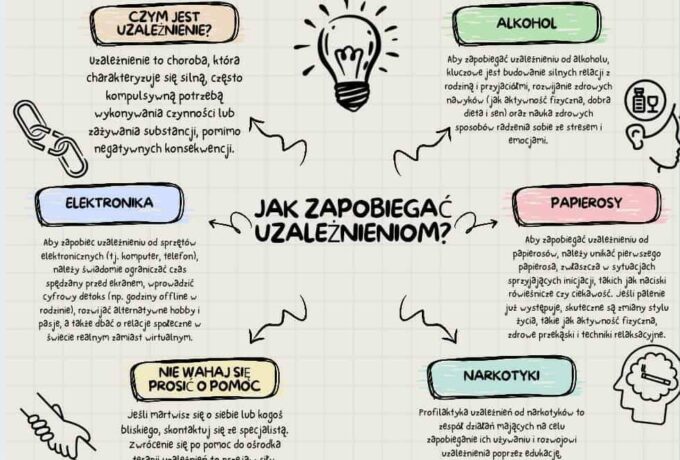 CZYM JEST
UZALEŻNIENIE?
Uzależnienie to choroba, która
charakteryzuje się silną, często
kompulsywną potrzebą
wykonywania czynności lub
zażywania substancji, pomimo
negatywnych konsekwencji.
ALKOHOL
Aby zapobiegać uzależnieniu od alkoholu,
kluczowe jest budowanie silnych relacji z
rodziną i przyjaciółmi, rozwijanie zdrowych
nawyków (jak aktywność fizyczna, dobra
dieta i sen) oraz nauka zdrowych
sposobów radzenia sobie ze stresem i
emocjami.
JAK ZAPOBIEGAĆ
UZALEŻNIENIOM?
ELEKTRONIKA
Aby zapobiec uzależnieniu od sprzętów
elektronicznych (tj. komputer, telefon),
należy świadomie ograniczać czas
spędzany przed ekranem, wprowadzić
cyfrowy detoks (np. godziny offline w
rodzinie), rozwijać alternatywne hobby i
pasje, a także dbać o relacje społeczne w
świecie realnym zamiast wirtualnym.
PAPIEROSY
Aby zapobiegać uzależnieniu od
papierosów, należy unikać pierwszego
papierosa, zwłaszcza w sytuacjach
sprzyjających inicjacji, takich jak naciski
rówieśnicze czy ciekawość. Jeśli palenie
już występuje, skuteczne są zmiany stylu
życia, takie jak aktywność fizyczna,
zdrowe przekąski i techniki relaksacyjne.
NIE WAHAJ SIĘ
PROSIĆ O POMOC
Jeśli martwisz się o siebie lub kogoś
bliskiego, skontaktuj się ze specjalistą.
Zwrócenie się po pomoc do ośrodka
NARKOTYKI
Profilaktyka uzależnień od narkotyków to
zespół działań mających na celu
zapobieganie ich używaniu i rozwojowi
uzależnienia poprzez edukację,